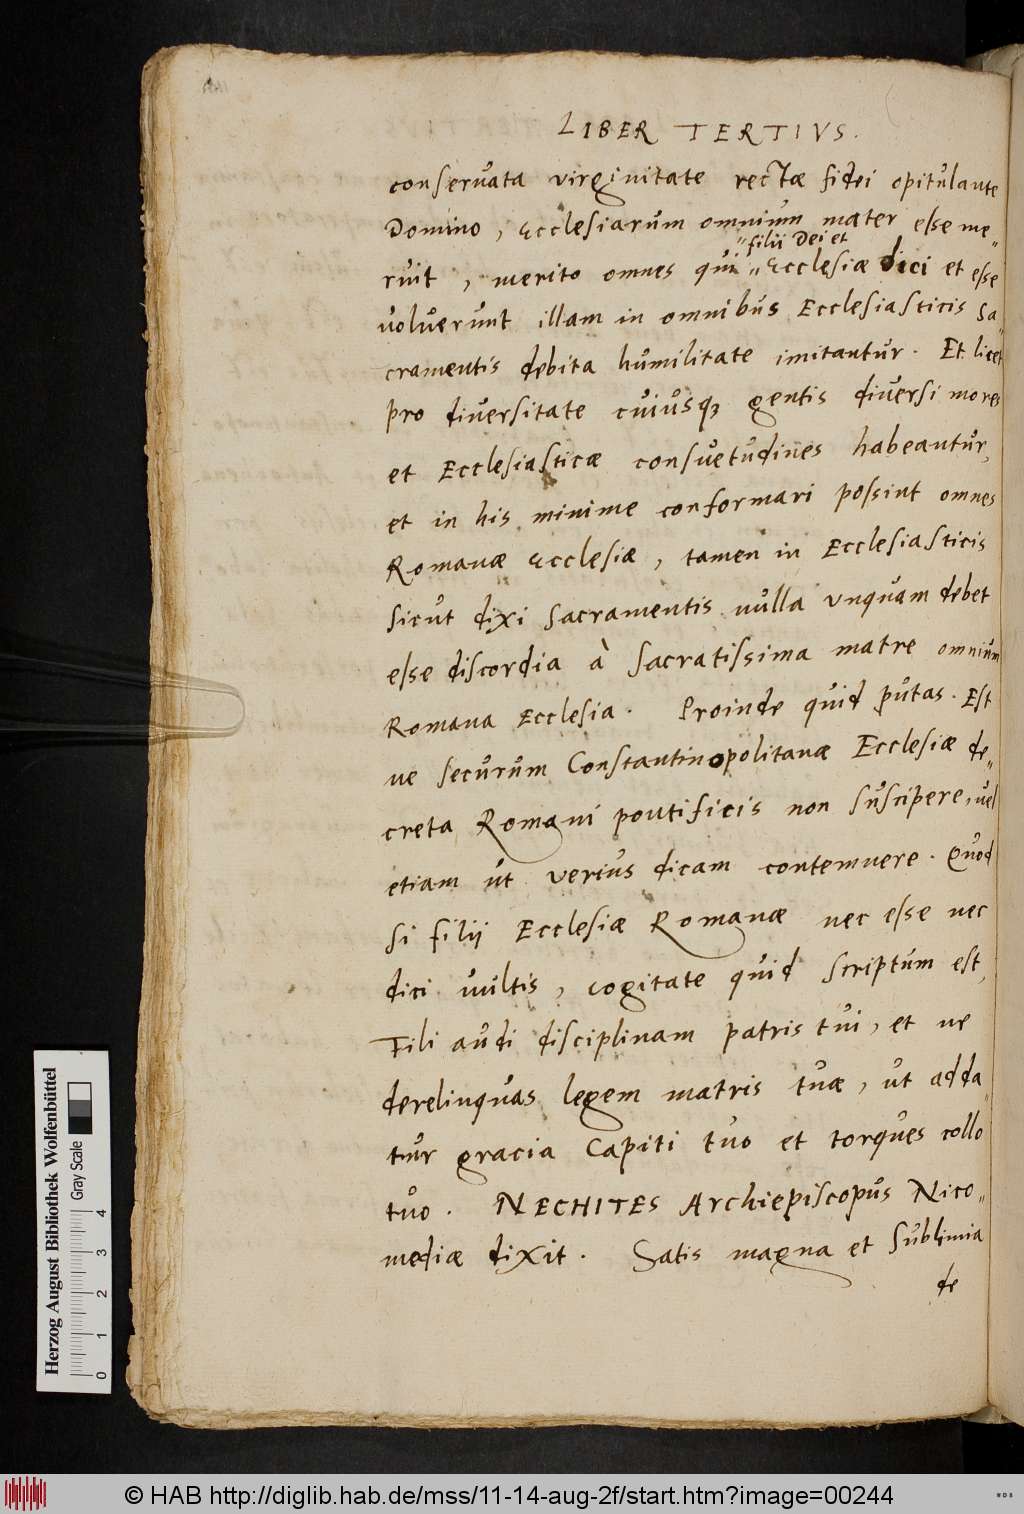 LIBER TERTIVS.
conseruata virginitate rectæ fidei opitulante
Domino, Ecclesiarum omnium mater esse me„
filii Dei et
ruit, merito omnes qui „ Ecclesiæ dici et esse
uoluerunt illam in omnibus Ecclesiasticis sa„
cramentis debita humilitate imitantur. Et licet
pro diuersitate cuiusqꝫ gentis diuersi mores
et Ecclesiasticæ consuetudines habeantur,
et in his minime conformari possint omnes
Romanæ Ecclesiæ, tamen in Ecclesiasticis
sicut dixi sacramentis nulla vnquam debet
esse discordia à sacratissima matre omnium
Romana Ecclesia. Proinde quid putas. Est
ne securum Constantinopolitanæ Ecclesiæ de„
creta Romani pontificis non suscipere, uel
etiam ut verius dicam contemnere. Quod
si filij Ecclesiæ Romanæ nec esse nec
dici uultis, cogitate quid scriptum est,
Fili audi disciplinam patris tui, et ne
derelinquas legem matris tuæ, ut adda„
tur gracia capiti tuo et torques collo
tuo. NECHITES Archiepiscopus Nico„
mediæ dixit. Satis magna et sublimia
de
Herzog August Bibliothek Wolfenbüttel
Gray Scale
0 1 2 3 4
© HAB http://diglib.hab.de/mss/11-14-aug-2f/start.htm?image=00244